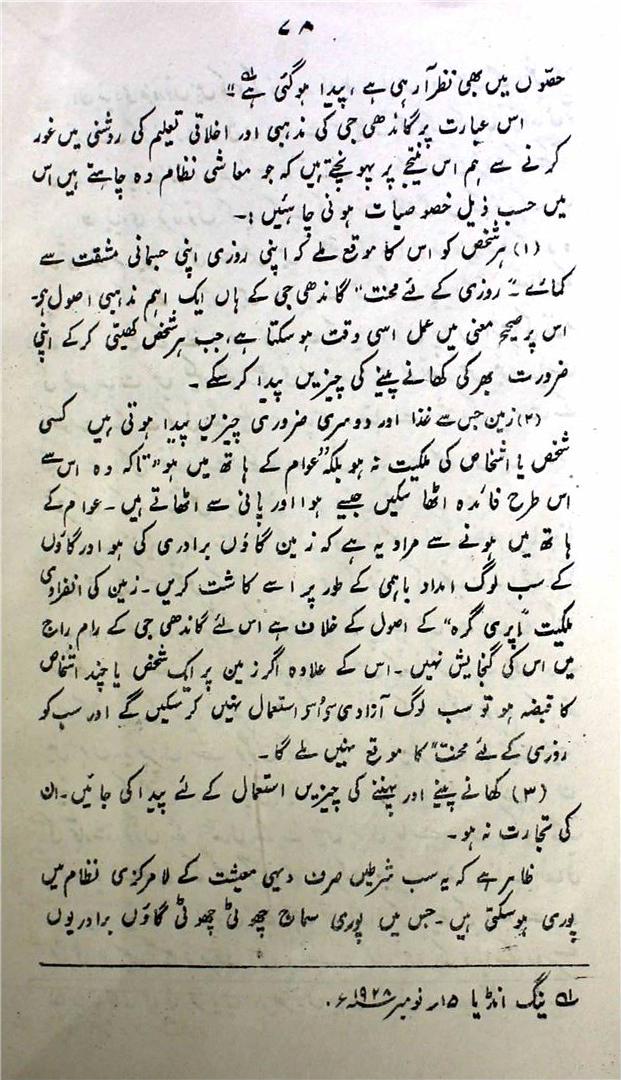 ۷۸
حصّوں میں بھی نظر آرہی ہے ، پیدا ہوگئی ہے لہ"
اس عبارت پر گاندھی جی کی مذہبی اور اخلاقی تعلیم کی روشنی میں غور
کرنے سے ہم اس نتیجے پر پہونچتے ہیں کہ جو معاشی نظام وہ چاہتے ہیں اس
میں حسب ذیل خصوصیات ہونی چاہئیں :۔
(۱) ہر شخص کو اس کا موقع ملے کہ اپنی روزی اپنی جسمانی مشقت سے
کمائے ۔ "روزی کے لئے محنت" گاندھی جی کے ہاں ایک اہم مذہبی اصول ہے۔
اس پر صحیح معنی میں عمل اسی وقت ہوسکتا ہے، جب ہر شخص کھیتی کرکے اپنی
ضرورت بھر کی کھانے پینے کی چیزیں پیدا کرسکے ۔
(۲) زمین جس سے غذا اور دوسری ضروری چیزیں پیدا ہوتی ہیں کسی
شخص یا اشخاص کی ملکیت نہ ہو بلکہ "عوام کے ہاتھ میں ہو" تاکہ وہ اس سے
اس طرح فائدہ اٹھا سکیں جیسے ہوا اور پانی سے اٹھاتے ہیں ۔ عوام کے
ہاتھ میں ہونے سے مراد یہ ہے کہ زمین گاؤں برادری کی ہو اور گاؤں
کے سب لوگ امداد باہمی کے طور پر اسے کاشت کریں ۔ زمین کی انفرادی
ملکیت "اپری گرہ" کے اصول کے خلاف ہے اس لئے گاندھی جی کے رام راج
میں اس کی گنجایش نہیں ۔ اس کے علاوہ اگر زمین پر ایک شخص یا چند اشخاص
کا قبضہ ہو تو سب لوگ آزادی سے اُسے استعمال نہیں کرسکیں گے اور سب کو
روزی کے لئے محنت" کا موقع نہیں ملے گا ۔
(۳) کھانے پینے اور پہننے کی چیزیں استعمال کے لئے پیدا کی جائیں ۔ ان
کی تجارت نہ ہو ۔
ظاہر ہے کہ یہ سب شرطیں صرف دیہی معیشت کے لامرکزی نظام میں
پوری ہوسکتی ہیں ۔ جس میں پوری سماج چھوٹی چھوٹی گاؤں برادریوں
لہ ینگ انڈیا ۱۵ر نومبر ۱۹۲۸ء ۔